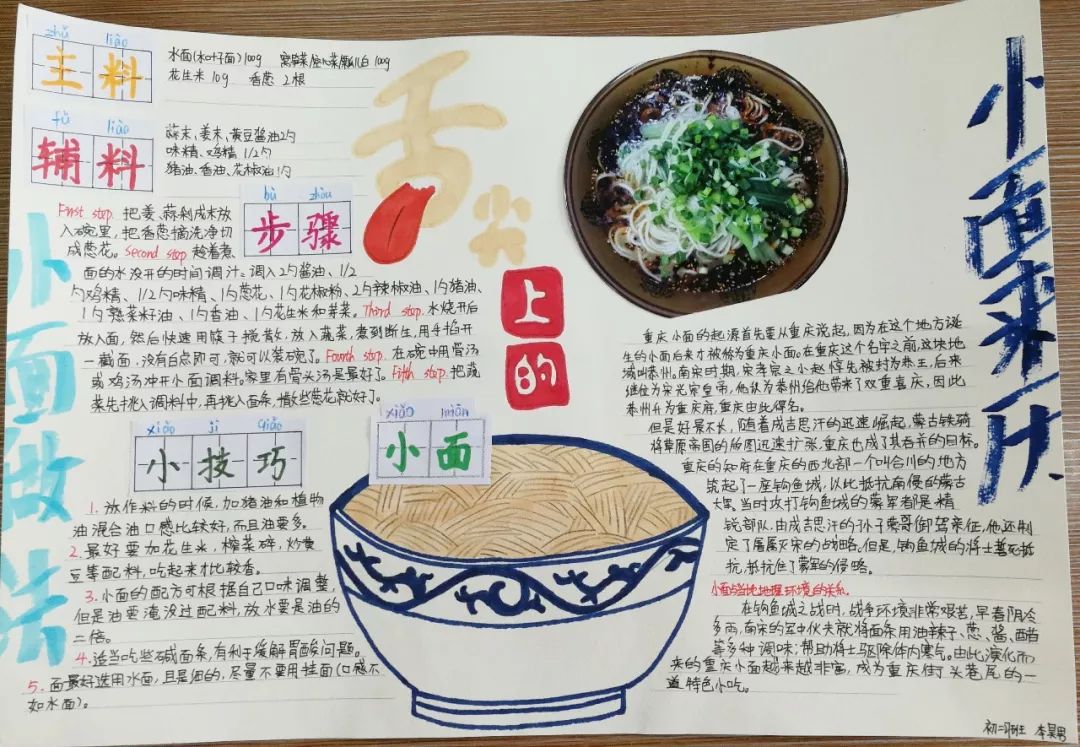 zhǔ liào
主料
水面(水叶子面)100g 100g
花生米 10g 香葱 2根
fǔ liào
辅料
蒜末、姜末、黄豆酱油2勺
味精、鸡精 1/2勺
猪油、香油、花椒油1勺
bù zhòu
步骤
First step. 把姜、蒜剁成末放
入碗里,把香葱摘洗净切
成葱花。Second step 趁着煮
面的水没开的时间调汁。调入2勺酱油、1/2
勺鸡精、1/2勺味精、1勺葱花、1勺花椒粉、2勺辣椒油、1勺猪油、
1勺熟菜籽油、1勺香油、1勺花生米和芽菜。Third step. 水烧开后
放入面,然后快速用筷子搅散,放入蔬菜,煮到断生,用手掐开
一截面,没有白点即可,就可以装碗了。Fourth step. 在碗中用骨汤
或鸡汤冲开小面调料。家里有骨头汤是最好了。Fifth step. 把蔬
菜先挑入调料中,再挑入面条,撒些葱花就好了。
xiǎo jì qiǎo
小技巧
1. 放作料的时候,加猪油和植物
油混合油口感比较好,而且油要多。
2. 最好要加花生米,榨菜碎,炒黄
豆等配料,吃起来才比较香。
3. 小面的配方可根据自己口味调整,
但是油要淹没过配料,放水要是油的
二倍。
4. 适当吃些碱面条,有利于缓解胃酸问题。
5. 面最好选用水面,且是细的,尽量不要用挂面(口感不
如水面)。
小面做法
舌尖
上的
xiǎo miàn
小面
小面来历
重庆小面的起源首先要从重庆说起,因为在这个地方诞
生的小面后来才被称为重庆小面。在重庆这个名字之前,这块地
域叫恭州。南宋时期,宋孝宗之小赵惇先被封为恭王,后来
继位为宋光宗皇帝,他认为恭州给他带来了双重喜庆,因此
恭州升为重庆府,重庆由此得名。
但是好景不长,随着成吉思汗的迅速崛起,蒙古铁骑
将草原帝国的版图迅速扩张,重庆也成了其吞并的目标。
重庆的知府在重庆的西北部一个叫合川的地方
筑起了一座钩鱼城,以此抵抗南侵的蒙古
大军。当时攻打钩鱼城的蒙军都是精
锐部队,由成吉思汗的孙子蒙哥御驾亲征,他还制
定了屠蜀灭宋的战略。但是,钩鱼城的将士誓死抵
抗,抵抗住了蒙军的侵略。
小面与当地地理环境的关系
在钩鱼城之战时,战争环境非常艰苦,早春阴冷
多雨,南宋的军中伙夫就将面条用油辣子、葱、酱、醋
等多种调味,帮助将士驱除体内寒气。由此演化而
来的重庆小面越来越丰富,成为重庆街头巷尾的一
道特色小吃。